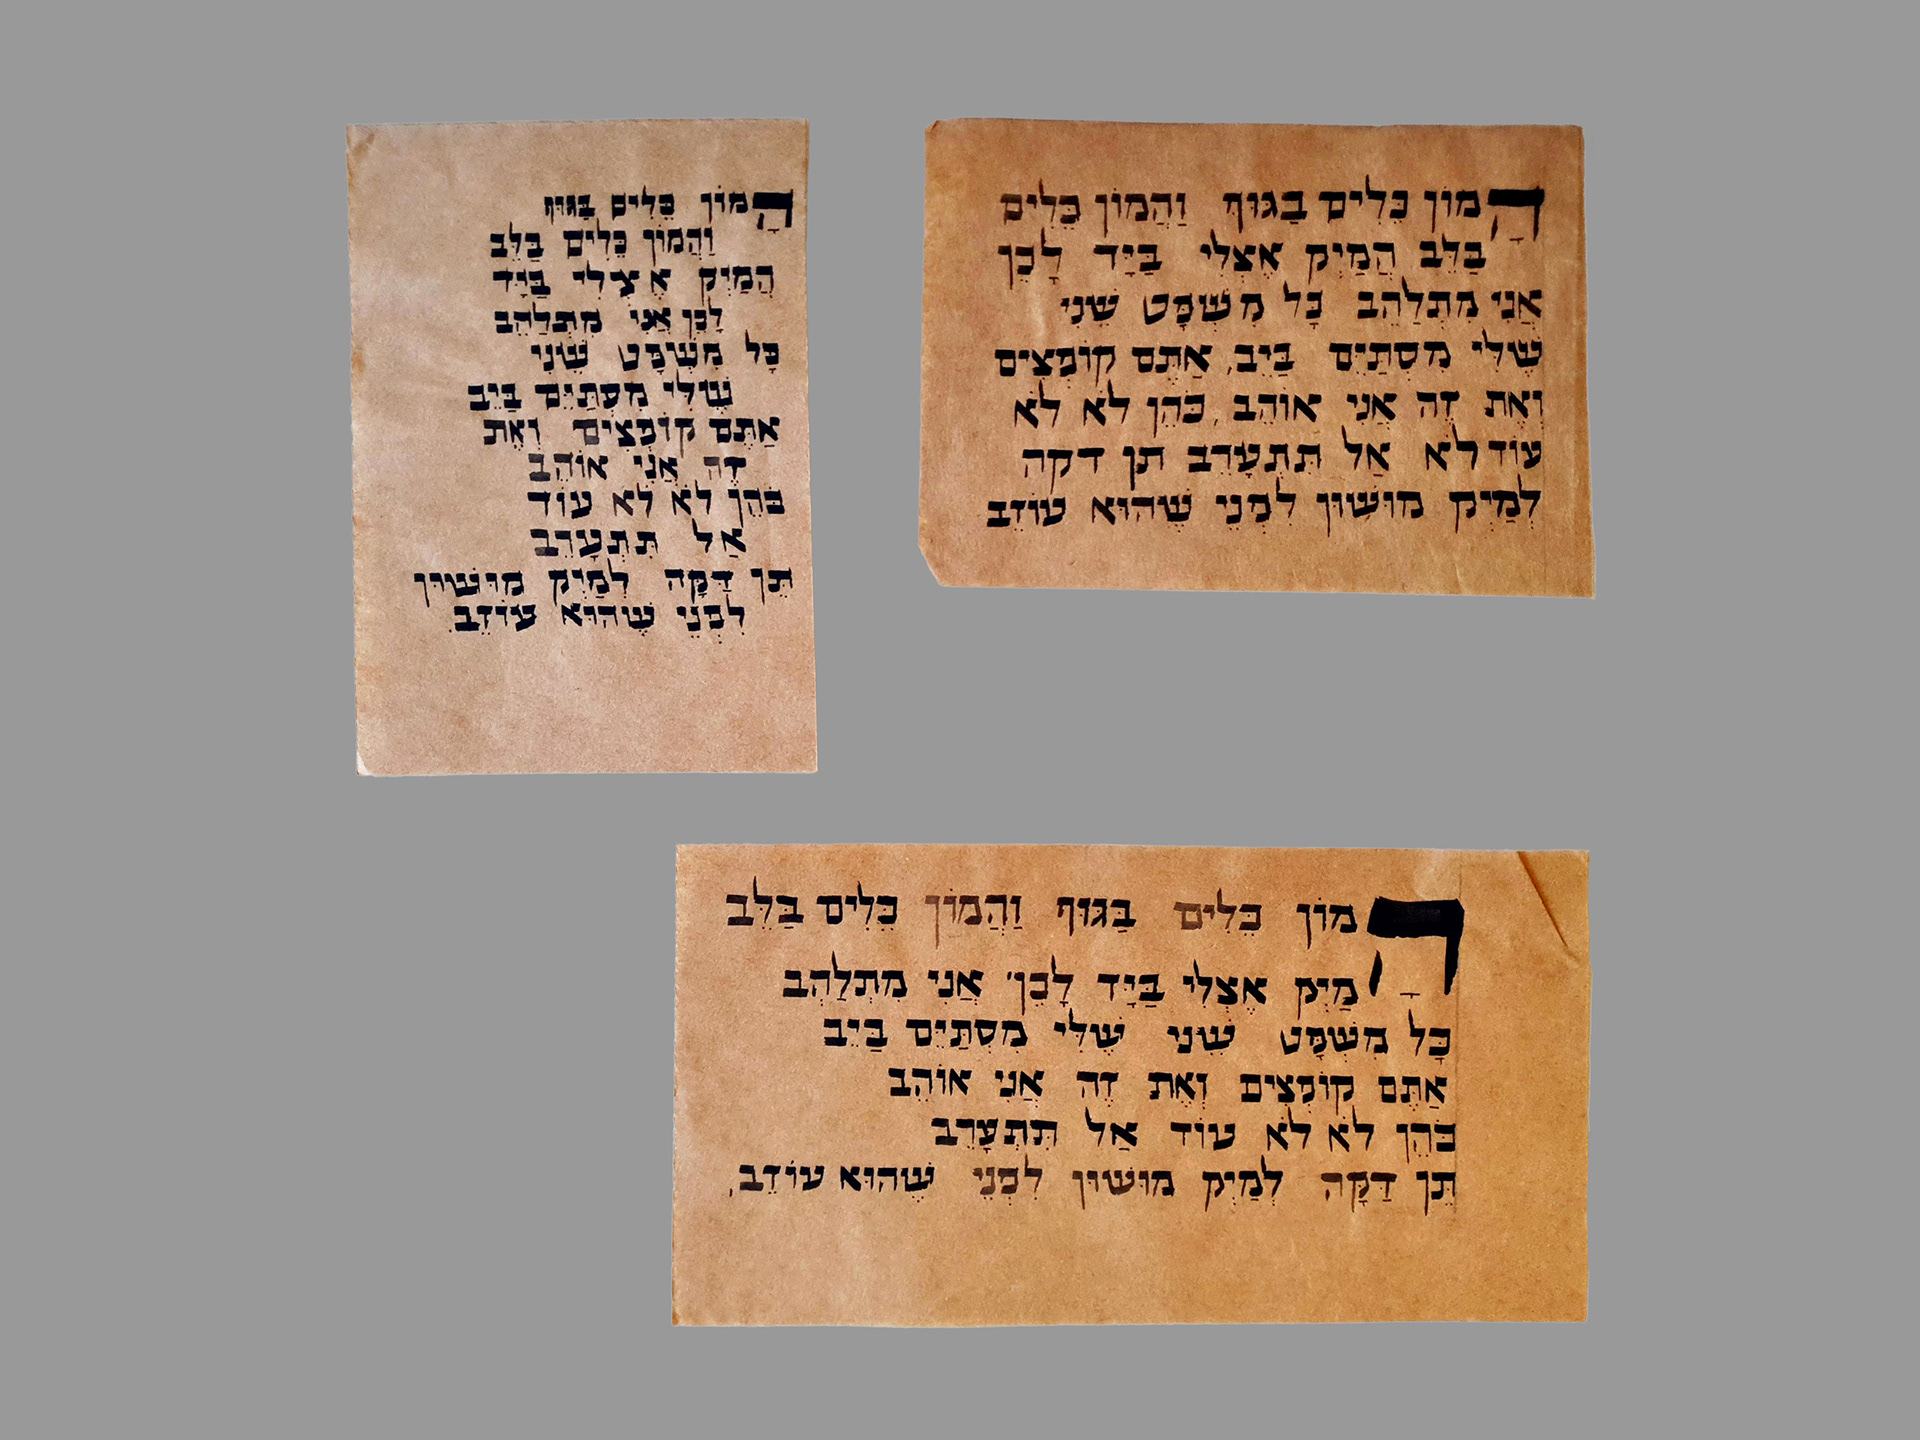 הָמוֹן כֵּלִים בַּגּוּף
וַהֲמוֹן כֵּלִים בַּלֵּב
הֲמַיְק אֶצְלִי בַּיָּד
לָכֵן אֲנִי מִתְלַהֵב
כָּל מִשְׁפָּט שֵׁנִי
שֶׁלִּי מִסְתַּיֵּם בַּיֵב
אַתֶּם קוֹפְצִים וְאֶת
זֶה אֲנִי אוֹהֵב
כֹּהֵן לֹא לֹא עוֹד
אַל תִּתְעָרֵב
תֵּן דַּקָּה לְמַיְק מוּשׁוּן
לִפְנֵי שֶׁהוּא עוֹזֵב.
הָמוֹן כֵּלִים בַּגּוּף וַהֲמוֹן כֵּלִים
בַּלֵּב הֲמַיְק אֶצְלִי בַּיָּד לָכֵן
אֲנִי מִתְלַהֵב כָּל מִשְׁפָּט שֵׁנִי
שֶׁלִּי מִסְתַּיֵּם בַּיֵב, אַתֶּם קוֹפְצִים
וְאֶת זֶה אֲנִי אוֹהֵב, כֹּהֵן לֹא לֹא
עוֹד לֹא אַל תִּתְעָרֵב תן דקה
לְמַיְק מוּשׁוּן לִפְנֵי שֶׁהוּא עוֹזֵב
הָמוֹן כֵּלִים בַּגּוּף וַהֲמוֹן כֵּלִים בַּלֵּב
מַיְק אֶצְלִי בַּיָּד לָכֵן, אֲנִי מִתְלַהֵב
כָּל מִשְׁפָּט שֵׁנִי שֶׁלִּי מִסְתַּיֵּם בַּיֵב
אַתֶּם קוֹפְצִים וְאֶת זֶה אֲנִי אוֹהֵב
כֹּהֵן לֹא לֹא עוֹד אַל תִּתְעָרֵב
תֵּן דַּקָּה לְמַיְק מוּשׁוּן לִפְנֵי שֶׁהוּא עוֹזֵב.